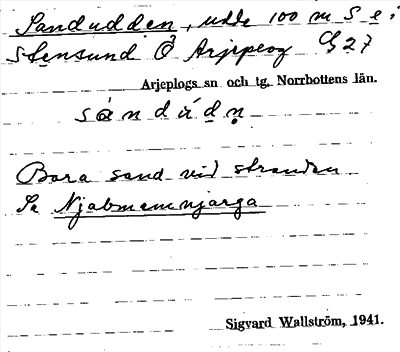 Sandudden, udde 100 m S e i
Stensund Ö Arjeplog G 27
Arjeplogs sn och tg, Norrbottens län.
sàndúdn̥
Bara sand vid stranden
Sa Njabmemnjarga
Sigvard Wallström, 1941.